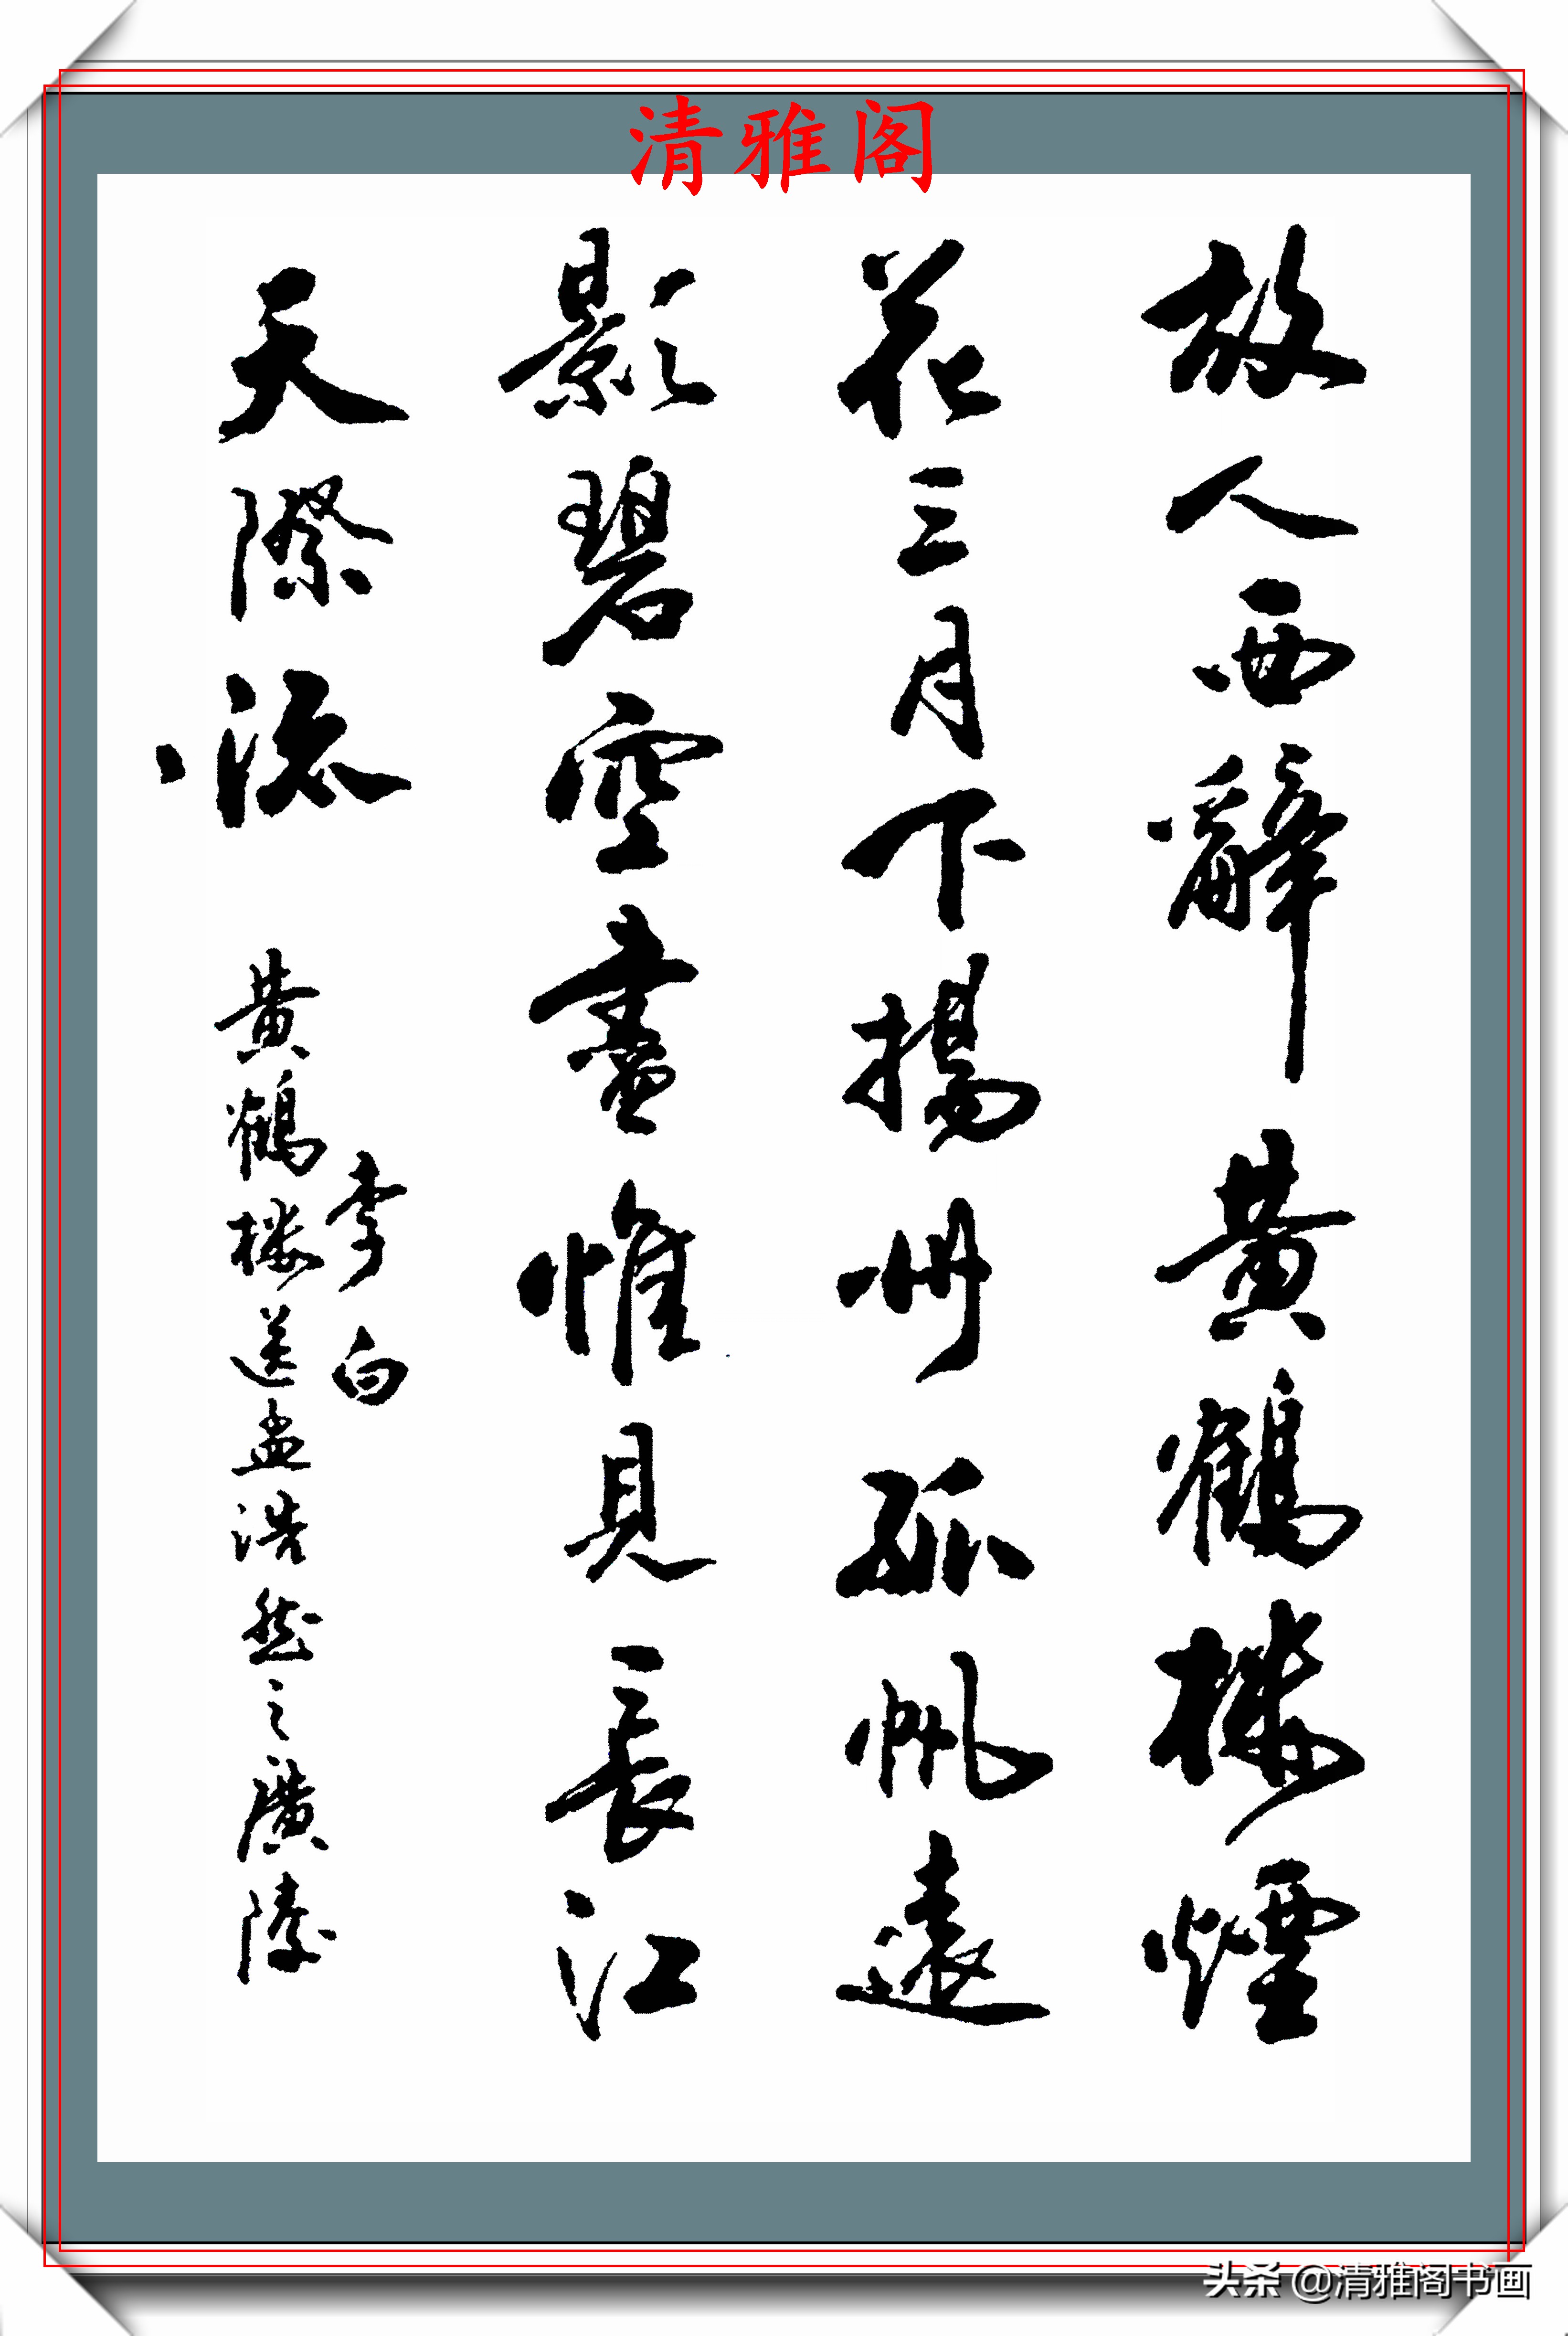 清雅阁
故人西辭黄鶴楼煙
花三月下揚州孤帆遠
影碧空盡惟見長江
天際流
李白
黄鶴楼送孟浩然之廣陵
头条 @清雅阁书画